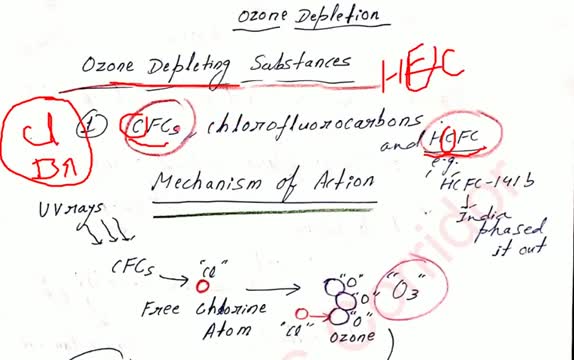 Ozone Depletion
Ozone Depleting Substances
HFC
Cl
Br
① CFCs, chlorofluorocarbons and HCFC
e.g.
HCFC-141b
India
phased
it out
Mechanism of Action
UV rays
CFCs
"Cl"
Free Chlorine
Atom
"O"
"O"
"O"
"O3"
"Cl"
Ozone